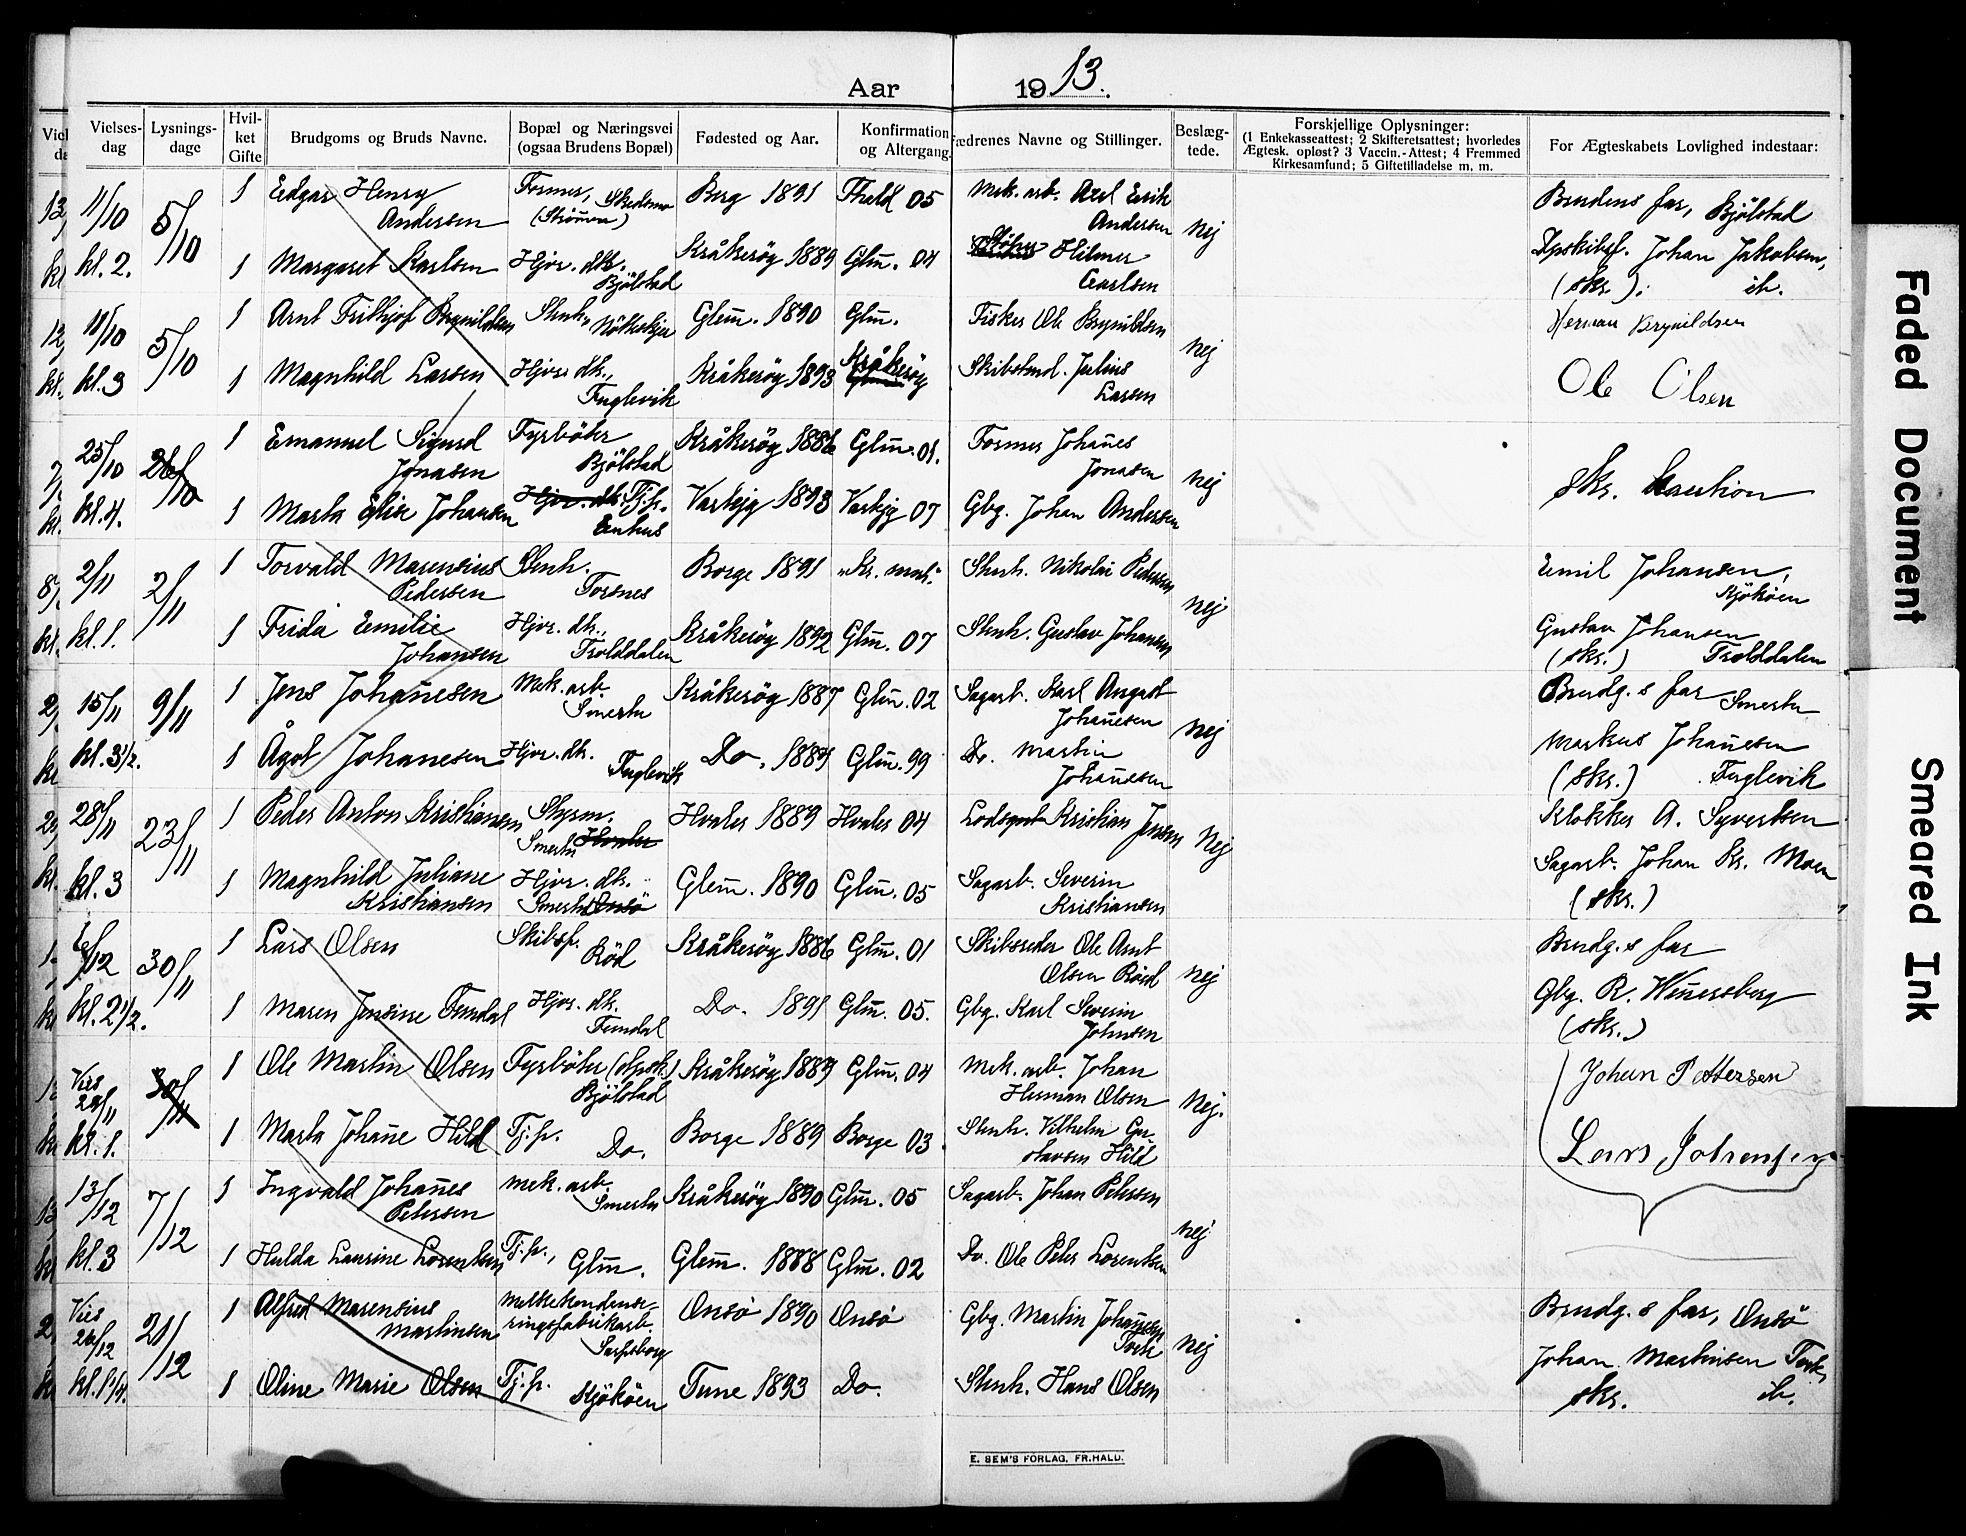 Aar 1913.
Vielses-dag
Lysnings-dage
Hvil-ket Gifte
Brudgoms og Bruds Navne.
Bopæl og Næringsvei (ogsaa Brudens Bopæl)
Fødested og Aar.
Konfirmation og Altergang.
Fædrenes Navne og Stillinger.
Beslæg-tede.
Forskjellige Oplysninger:
(1 Enkekasseattest; 2 Skifteretsattest; hvorledes
Ægtesk. opløst? 3 Vaccin.-Attest; 4 Fremmed
Kirkesamfund; 5 Giftetilladelse m. m.
For Ægteskabets Lovlighed indestaar:
11/10 5/10 1 Edgar Henry Andersen Former, Skedsmo (Strømmen) Berg 1891 Fhald 05 Mek. arb. Axel Erik Andersen nej Brudens far, Bjölstad
kl. 2. 1 Margaret Karlsen Hjvr. dtr. Bjölstad Kråkeröy 1889 Glm. 04 Hilmer Carlsen Johan Jakobsen, (skr.); ib.
11/10 5/10 1 Arnt Frithjof Brynildsen Stenh. Glem. 1890 Glm. Fisker Ole Brynildsen nej Herman Brynildsen
kl. 3 1 Magnhild Larsen Hjvr. dtr., Fuglevik Kråkeröy 1893 Kråkeröy Julius Larsen Ole Olsen
25/10 26/10 1 Emanuel Sigurd Jonasen Fyrböter Bjölstad Kråkeröy 1886 Glm. 01. Former Johañes Jonasen nej skr. kaution
kl. 4. 1 Marta Elise Johansen Hjvr. dtr. Tj.p. Enhus Varteig 1893 Varteig 07 Gbg. Johan Andersen
2/11 2/11 1 Torvald Marensius Pedersen Stenh. Torsnes Borge 1891 "Kr. mor." Stenh. Nikolai Pedersen nej Emil Johansen, Kjököen
kl. 1. 1 Frida Emilie Johansen Hjvr. dtr., Trolddalen Kråkeröy 1892 Glm. 07 Stenh. Gustav Johansen Gustav Johansen (skr.) Trolddalen
15/11 9/11 1 Jens Johañesen Mek. arb. Smertu Kråkeröy 1887 Glm. 02 Sagarb. Karl August Johañesen nej Brudg.s far Smertu
kl. 3 1/2. 1 Ågot Johañesen Hjvr. dtr. Fuglevik Do. 1884 Glm. 99 Do. Martin Johañesen Markus Johañesen (skr.) Fuglevik
28/11 23/11 1 Peder Anton Kristiansen Styrm. Smertu Hvaler Hvaler 1889 Hvaler 04 Kristian Jensen Nej Klokker A. Syvertsen
kl. 3 1 Magnhild Juliane Kristiansen Hjvr. dtr. Smertu Onsö Glem. 1890 Glm. 05 Sagarb. Severin Kristiansen Sagarb. Johan Kr. Moen (skr.)
6/12 30/11 1 Lars Olsen Skibsf. Röd Kråkeröy 1886 Glm. 01 Skibsreder Ole Arnt Olsen Röd nej Brudg.s far
kl. 2 1/2. 1 Maren Jensine Femdal Hjvr. dtr. Femdal Do. 1891 Glm. 05. Gbg. Karl Severin Johnsen Gbg. R. Weñersberg (skr.)
Vies 29/11 30/11 1 Ole Martin Olsen Fyrböter Bjölstad Kråkeröy 1889 Glm. 04 Mek. arb. Johan Herman Olsen Nej. Johan Pettersen
kl. 1. 1 Marta Johañe Hild Tj.p. Do. Borge 1889 Borge 03. Stenh. Vilhelm Gustavsen Hild
13/12 7/12 1 Ingvald Johañes Petersen Mek. arb. Smertu Kråkeröy 1890 Glm. 05 Sagarb. Johan Petersen nej
kl. 3 1 Hulda Laurine Lorentsen Tj.p., Glm. Glem. 1888 Glm. 02 Do. Ole Peter Lorentsen
Vies 26/12 21/12 1 Alfred Marensius Martinsen Melkekondense-ringsfabrikarb. Sarpsborg Onsö 1890 Onsö Gbg. Martin Johañesen Tork nej Brudg.s far, Onsö
1 Oline Marie Olsen Tj.p. Kjököen Tune 1893 Do. Stenh. Hans Olsen Johan Martinsen Tork, skr. ib.
E. SEM'S FORLAG, FR.HALD.
Faded Document
Smeared Ink